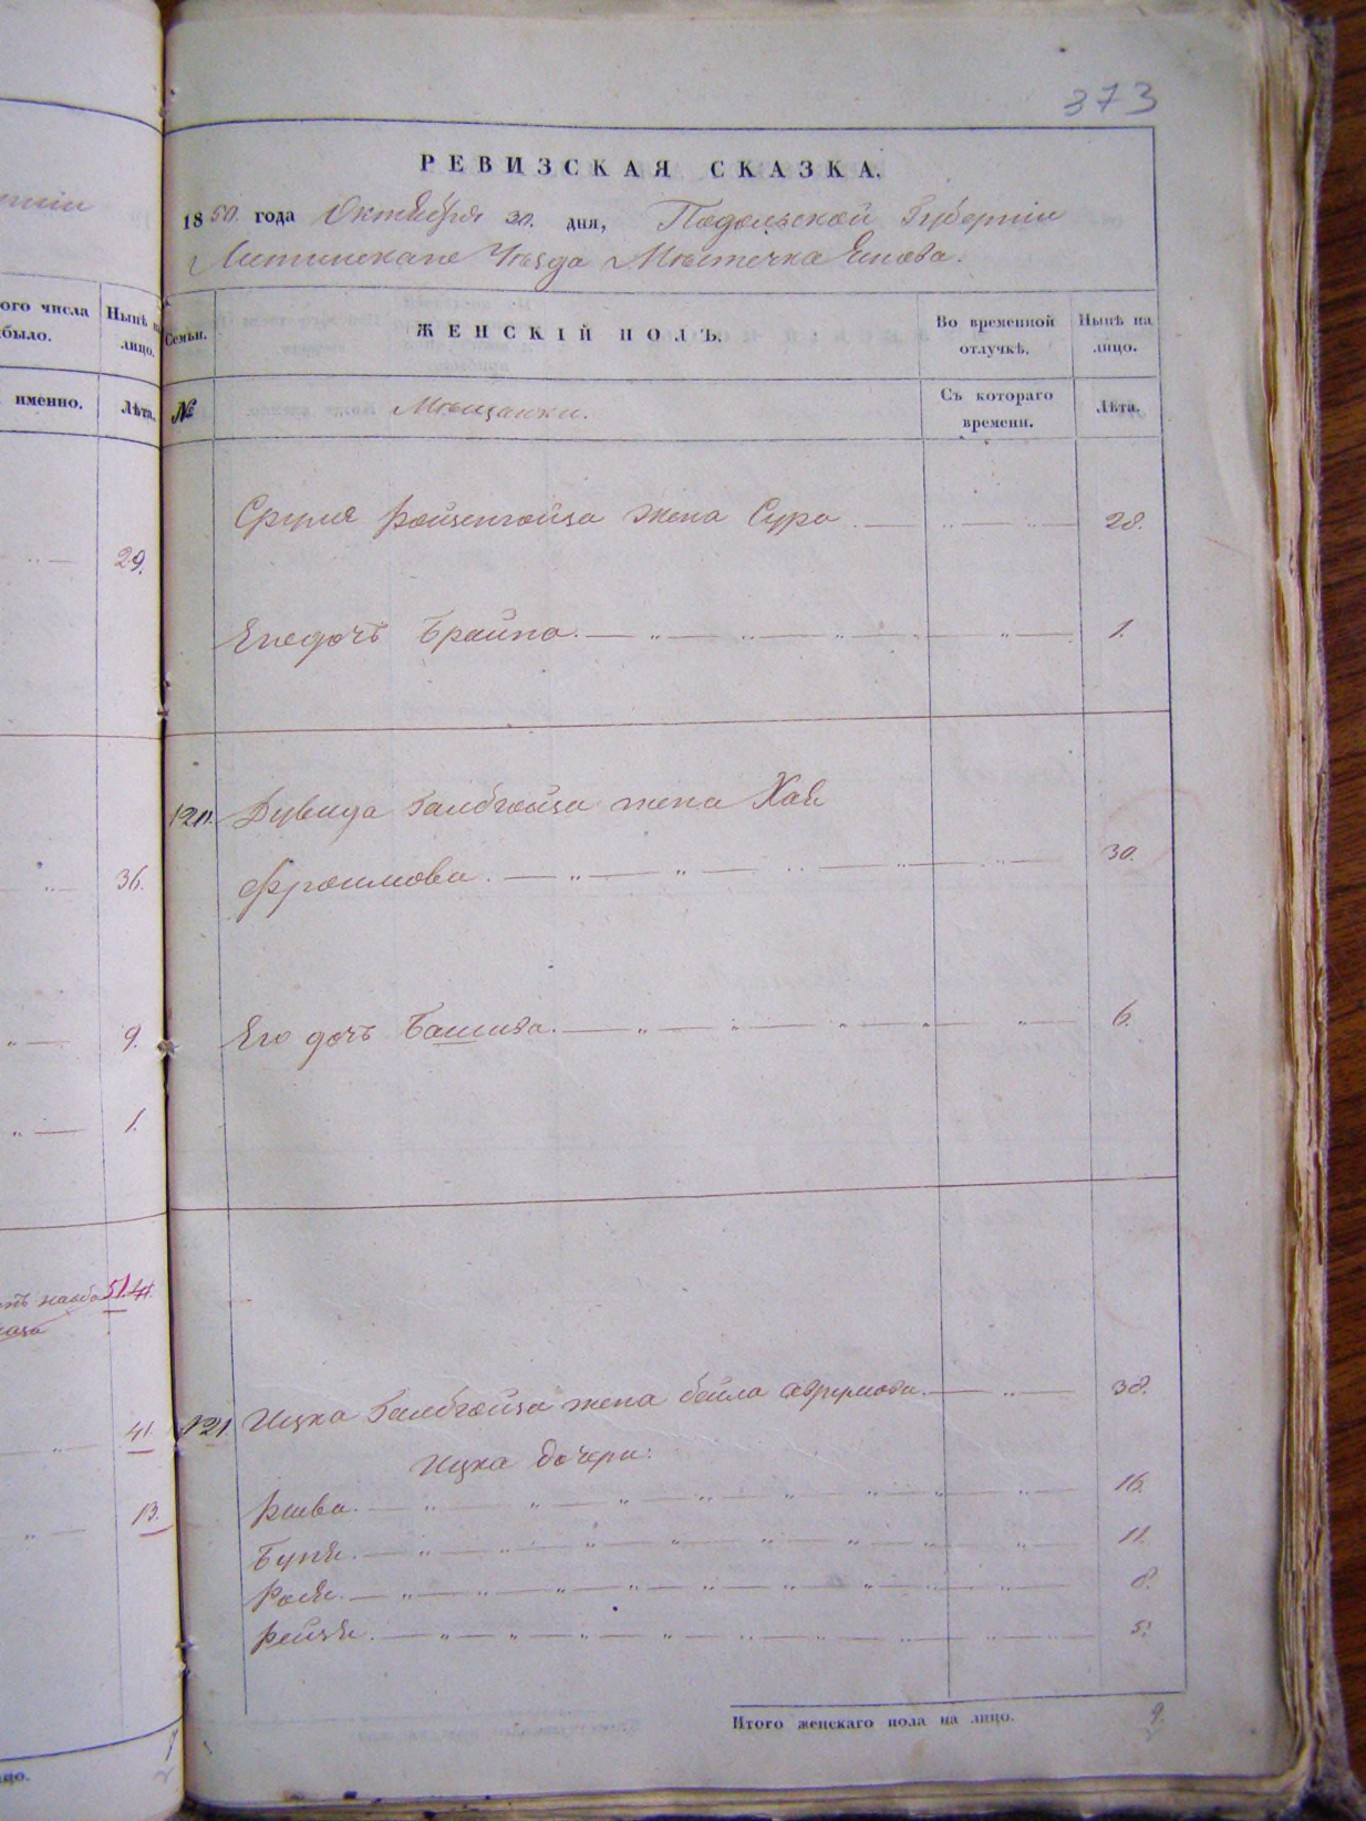 373
тніи
РЕВИЗСКАЯ СКАЗКА.
1850. года Октября 30. дня, Подольской Губерніи
Литинскаго Уезда Мѣстечка Янова.
ого числа
было.
Нынѣ на
лицо.
именно.
Лѣта.
Семьи.
ЖЕНСКІЙ ПОЛЪ.
Во временной
отлучкѣ.
Нынѣ на
лицо.
№
Мѣщанки.
Съ котораго
времени.
Лѣта.
29.
Сруля Ройзенгойза жена Сура 28.
Его дочь Брайна. 1.
36.
120. Дувида Галбгойза жена Хая
Фроимова. 30.
9.
Его дочь Башива. 6.
1.
51.
41.
121 Ицка Галбгойза жена Бейла Афрумова. 38.
Ицка дочери:
13.
Рива. 16.
Буня. 11.
Рося. 8.
Рейзя. 5.
Итого женскаго пола на лицо. 9.
цо.